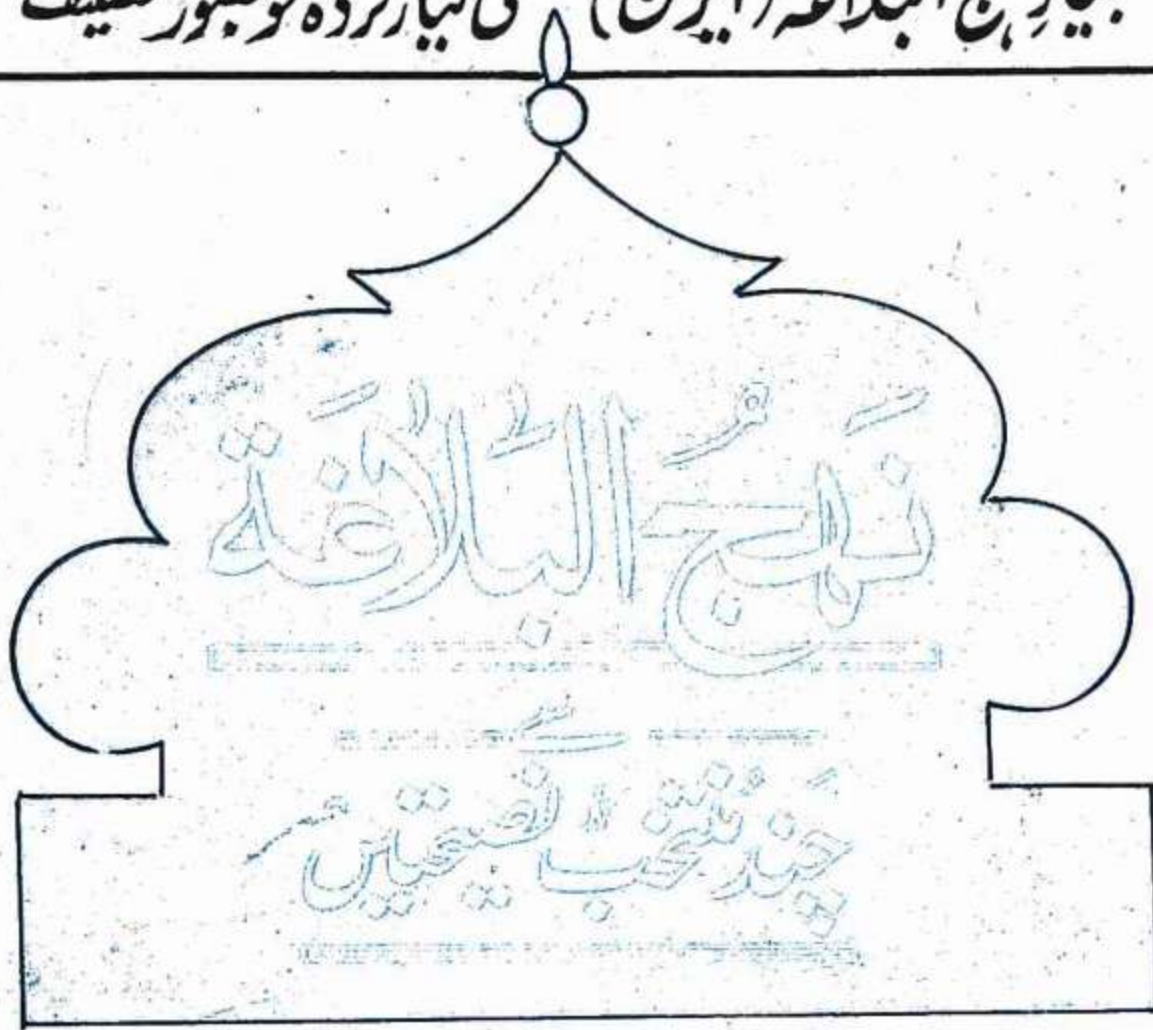 بنیادِ نہج البلاغہ (ایران) کی تیار کردہ خوبصورت تصنیف
نَهجُ البَلاغَة
چند منتخب نصیحتیں